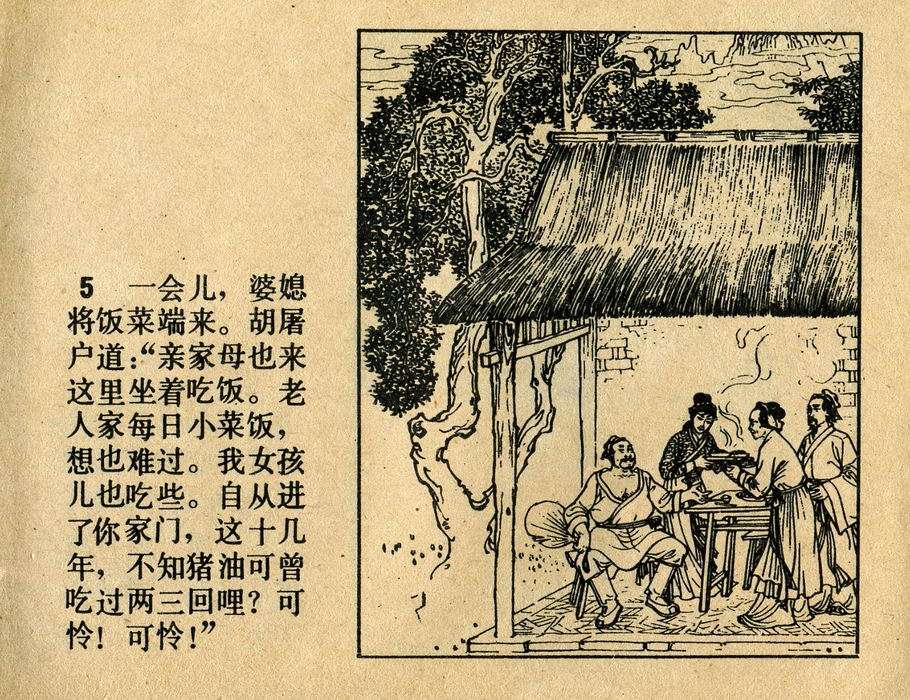 5 一会儿，婆媳
将饭菜端来。胡屠
户道：“亲家母也来
这里坐着吃饭。老
人家每日小菜饭，
想也难过。我女孩
儿也吃些。自从进
了你家门，这十几
年，不知猪油可曾
吃过两三回哩？可
怜！可怜！”